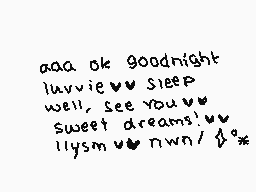 aaa ok goodnight
luvvie ♥♥ sleep
well, see you ♥♥
sweet dreams! ♥♥
llysm ♥♥ nwn/ ✧°*